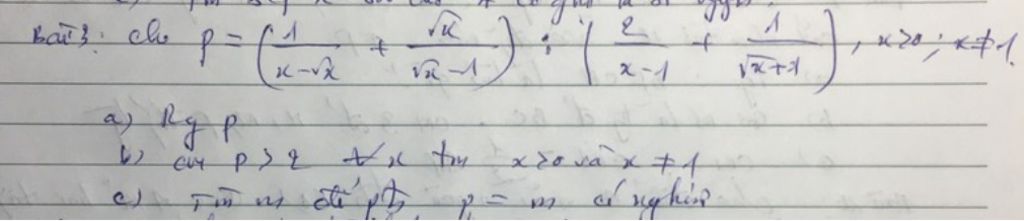 Bài 3: cho P = (1/(x-√x) + √x/(√x-1)) : (2/(x-1) + 1/(√x+1)), x>0; x≠1.
a) Rg P
b) cm P > 2 ∀x tm x>0 và x≠1
c) Tìm m để pt P = m có nghiệm